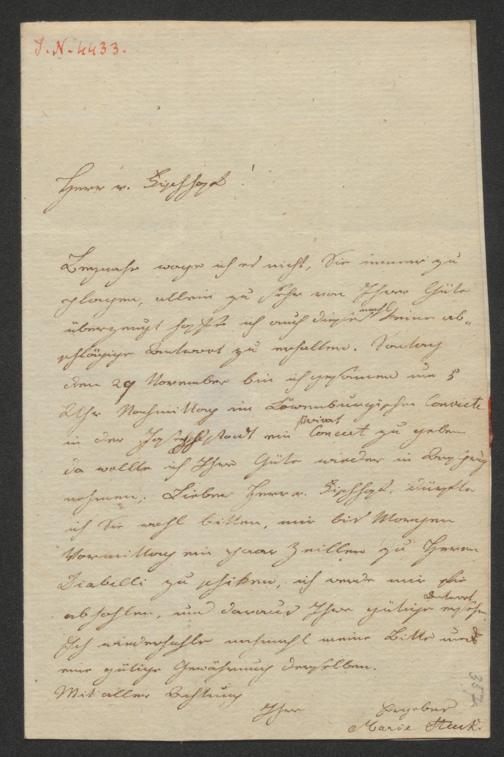 J.N. 4433.
Herr v. Fischhof!
Beynahe wage ich es nicht, Sie immer zu
plagen, allein zu sehr von Ihrer Güte
überzeugt hoffe ich auch dießmahl keine ab-
schlägige Antwort zu erhalten. Sontag
den 29 November bin ich gesonnen um 5
Uhr Nachmittag im Löwenburgischen Convicte
in der Josephstadt ein privat Concert zu geben
da wollte ich Ihre Güte wieder in Anspruch
nehmen. Lieber Herr v. Fischhof, dürfte
ich Sie wohl bitten, mir bis Morgen
Vormittag ein paar Zeillen zu Herrn
Diabelli zu schiken, ich werde mir sie
abhohlen, und daraus Ihre gütige Antwort ersehen.
Ich wiederhohle nochmahl meine Bitte und
eine gütige Gewährung derselben.
Mit aller Achtung
Ihre Ergebne
Marie
357